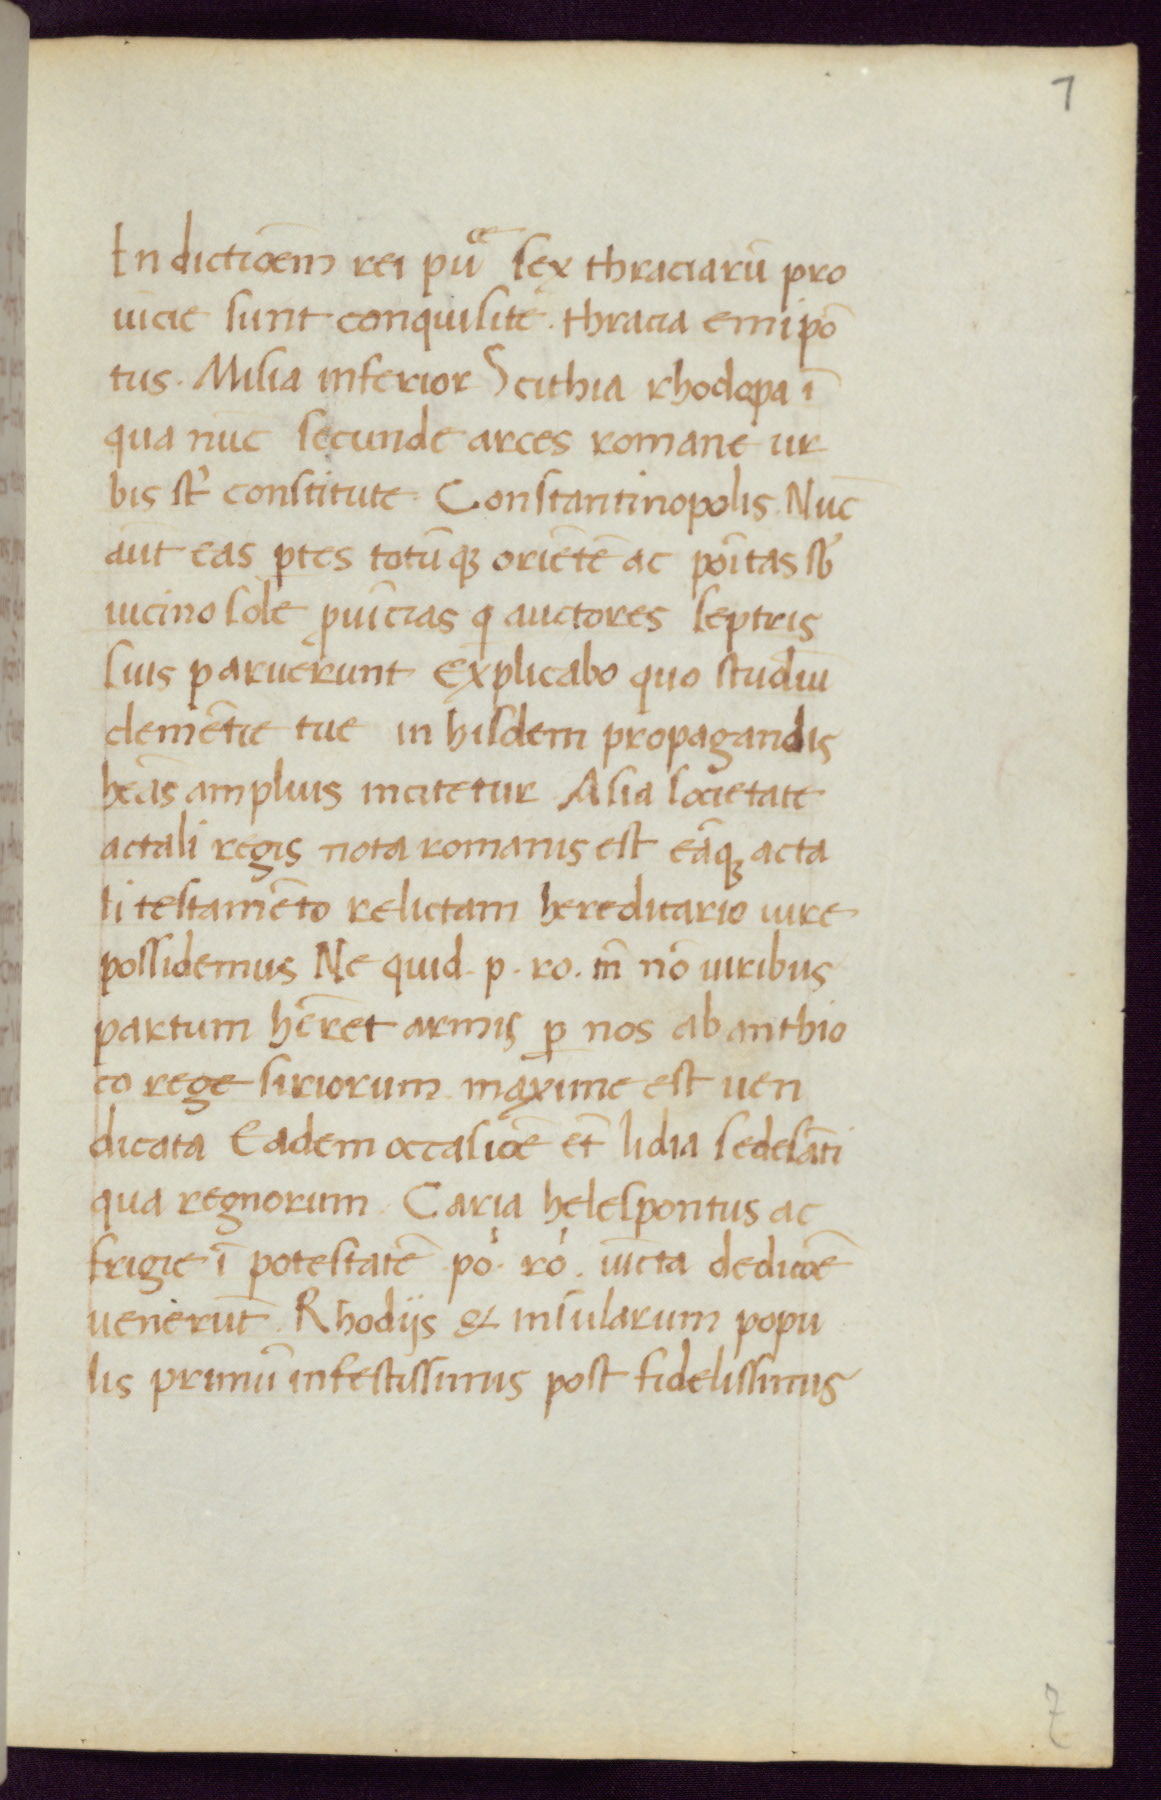 7
In dictioēm rei pu͞ce sex thraciarū pro
uicie sunt conquisite. thracia emipō
tus. Misia inferior Scithia rhodopa ī
qua nūc secunde arces romane ur
bis st̄ constitute. Constantinopolis. Nūc
aūt eas ꝑtes totūqꝫ oriētē ac poītas sb̄
uicino sole ꝓuīcias q auctores septris
suis paruerunt Explicabo quo studiū
clemētie tue in hisdem propagandis
heās amplius incitetur Asia societate
actali regis nota romanis est eāqꝫ acta
li testamēto relictam hereditario iure
possidemus Ne quid. p. ro. tn̄ nō uiribus
partum hēret armis ꝑ nos ab anthio
co rege siriorum maxime est uen
dicata Eadem occasiōe et̄ lidia sedes āti
qua regnorum. Caria helespontus ac
frigie ī potestatē pō. rō. uīcta dedicōe
uenerūt. Rhodijs & insularum popu
lis primū infestissimis post fidelissimis
7